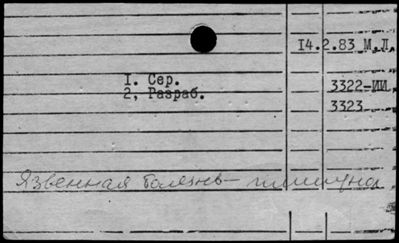 14.2.83 М.Л.
1. Сер. 3322-ИИ
2, Разраб. 3323
Язвенная болезнь-